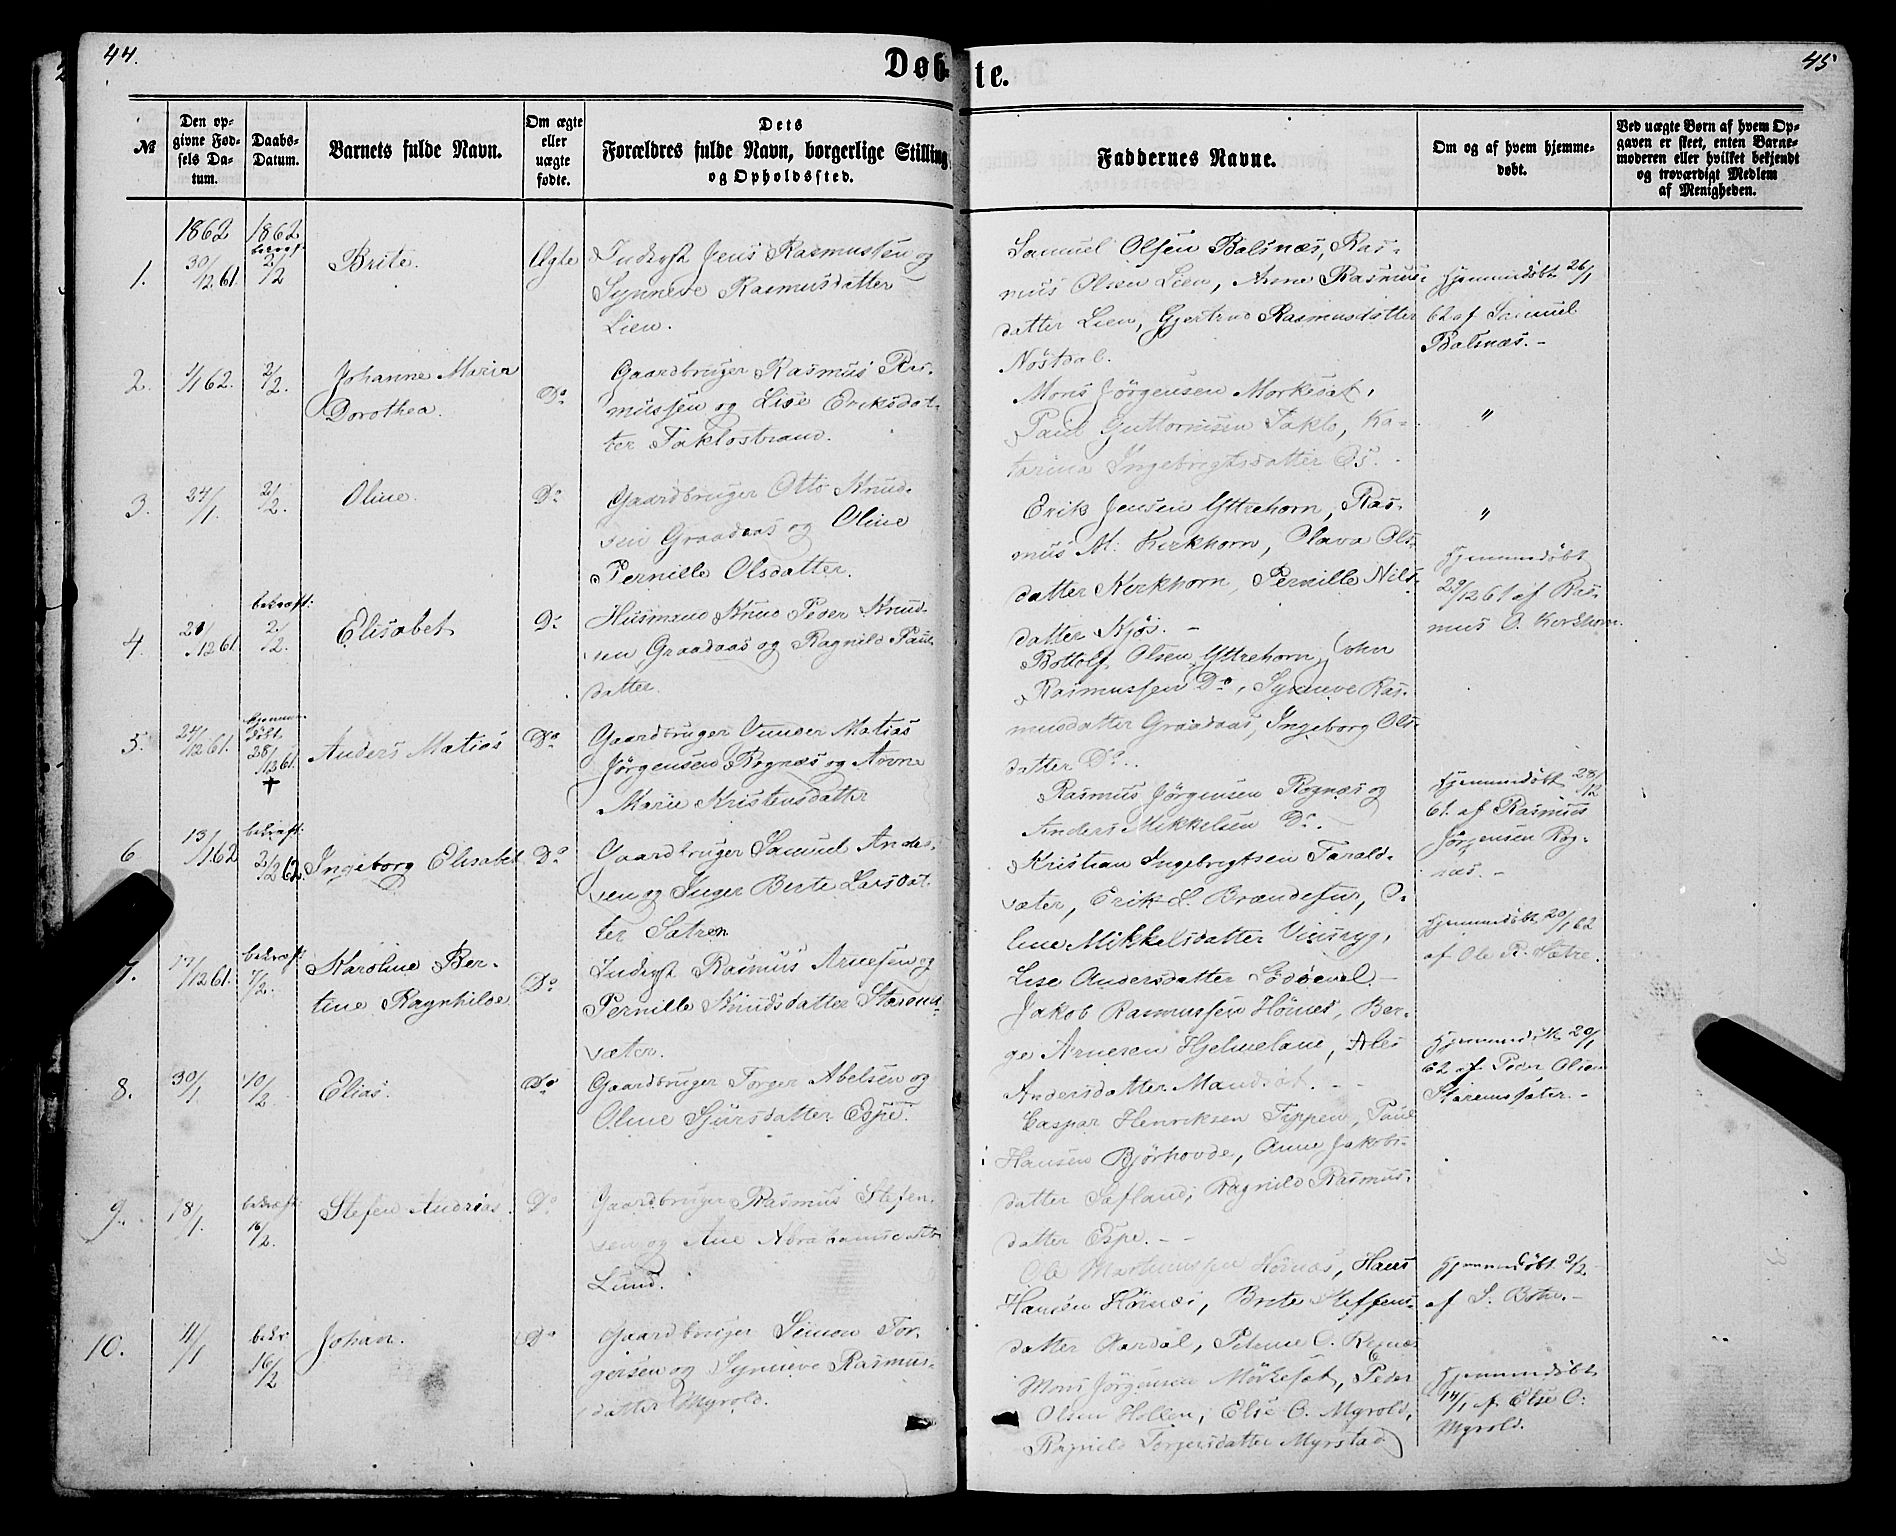 44.
Døb-
te.
45
№
Den op-
givne Fød-
sels Da-
tum.
Daabs-
Datum.
Barnets fulde Navn.
Om ægte
eller
uægte
fødte.
Dets
Forældres fulde Navn, borgerlige Stilling
og Opholdssted.
Faddernes Navne.
Om og af hvem hjemme-
døbt.
Ved uægte Børn af hvem Op-
gaven er skeet, enten Barne-
moderen eller hvilket bekjendt
og troværdigt Medlem
af Menigheden.
1862
1862
1.
30/12 61.
bekræft:
2/2
Brite.
Ægte
Inderst Jens Rasmussen og
Synneve Rasmusdatter
Lien.
Samuel Olsen Balsnæs, Ras-
mus Olsen Lien, Anne Rasmus-
datter Lien, Gjertrud Rasmusdatter
Nøstdal.
Hjemmedøbt 26/1
62 af Samuel
Balsnæs. -
2.
1/1 62.
2/2.
Johanne Maria
Dorothea.
Do
Gaardbruger Rasmus Ras-
mussen og Lise Eriksdat-
ter Taklostrand.
Mons Jörgensen Morkesat,
Paul Guttormsen Taklo, Ka-
tarina Ingebrigtsdatter Os.
"
3.
24/1.
2/2.
Oline.
Do
Gaardbruger Otto Knud-
sen Graadaas og Oline
Pernille Olsdatter.
Erik Jensen Yttrehorn, Ras-
mus M. Kirkhorn, Olava Ols-
datter Kirkhorn, Pernille Nils-
datter Kjös. -
"
4.
21/12 61.
bekræft:
2/2.
Elisabet
Do
Husmand Knud Peder Knud-
sen Graadaas og Ragnild Paul-
datter.
Bottolf Olsen Yttrehorn, John
Rasmussen Do, Synneve Ras-
musdatter Graadaas, Ingeborg Ols-
datter Do.
Hjemmedøbt
29/12 61 af Ras-
mus O. Kirkhorn.
5.
24/12 61.
hjemme-
døbt.
28/12 61.
†
Anders Matias
Do
Gaardbruger Matias
Jörgensen Rognæs og Anne
Marie Kristensdatter
Rasmus Jörgensen Rognæs og
Anders Mikkelsen Do. -
Hjemmedøbt 28/12
61. af Rasmus
Jörgensen Rog-
næs. -
6
13/1 62
bekræft:
2/2 62.
Ingeborg Elisabet
Do
Gaardbruger Samuel Anders-
sen og Inger Berte Larsdat-
ter Sætren
Kristian Ingebrigtsen Tarald-
sæter, Erik L. Brandesur, O-
line Mikkelsdatter
Lise Andersdatter
Hjemmedøbt 20/1 62
af Ole R. Sætre.
7.
17/12 61.
bekræft:
7/2.
Karoline Ber-
tine Ragnhilde
Do
Inderst Rasmus Arnesen og
Pernille Knudsdatter Staren-
sæter.
Jakob Rasmussen Hönæs, Ber-
ge Arnesen Hjelmeland, Ales
Andersdatter Mandsöt. -
Hjemmedøbt 20/1
62 af Peder Olsen
8.
30/1.
10/2.
Elias.
Do
Gaardbruger Torger Abelsen og
Oline Sjursdatter Espe.
Caspar Henriksen Tippen, Paul
Hansen Bjørhovde, Anne Jakobs-
datter Sæfland, Ragnild Rasmus-
datter Espe. - -
9.
18/1.
bekræft:
16/2.
Stefen Andreas.
Do
Gaardbruger Rasmus Stefen-
sen og Ane Abrahamsdatter
Lund.
Ole Martinussen Hönæs, Hans
Hansen Hönæs, Brite Steffens-
datter Aardal,
Hjemmedøbt 2/2
af S. Botn. -
10.
11/1
bekr.
16/2
Johan.
Do
Gaardbruger Simon Tor-
gersen og Synneve Rasmus-
datter Myrold.
Mons Jörgensen Mörkesæt, Peder
Olsen Hollen, Else O. Myrold,
Ragnild Torgersdatter Myrstad
Hjemmedøbt
14/1 af Else O.
Myrold.